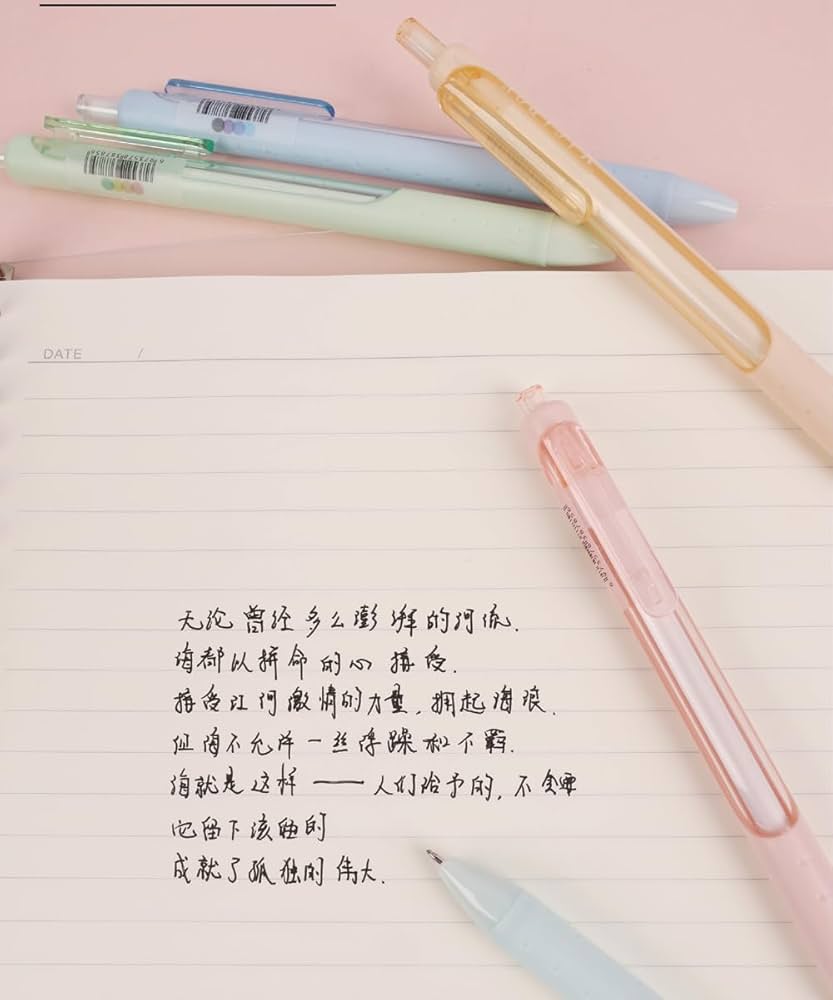 DATE /
无论曾经多么澎湃的河流.
海都以拼命的心接受.
接受江河激情的力量,拥起海浪.
但海不允许一丝浮躁和不羁.
海就是这样——人们给予的,不
它留下该留的
成就了孤独的伟大.